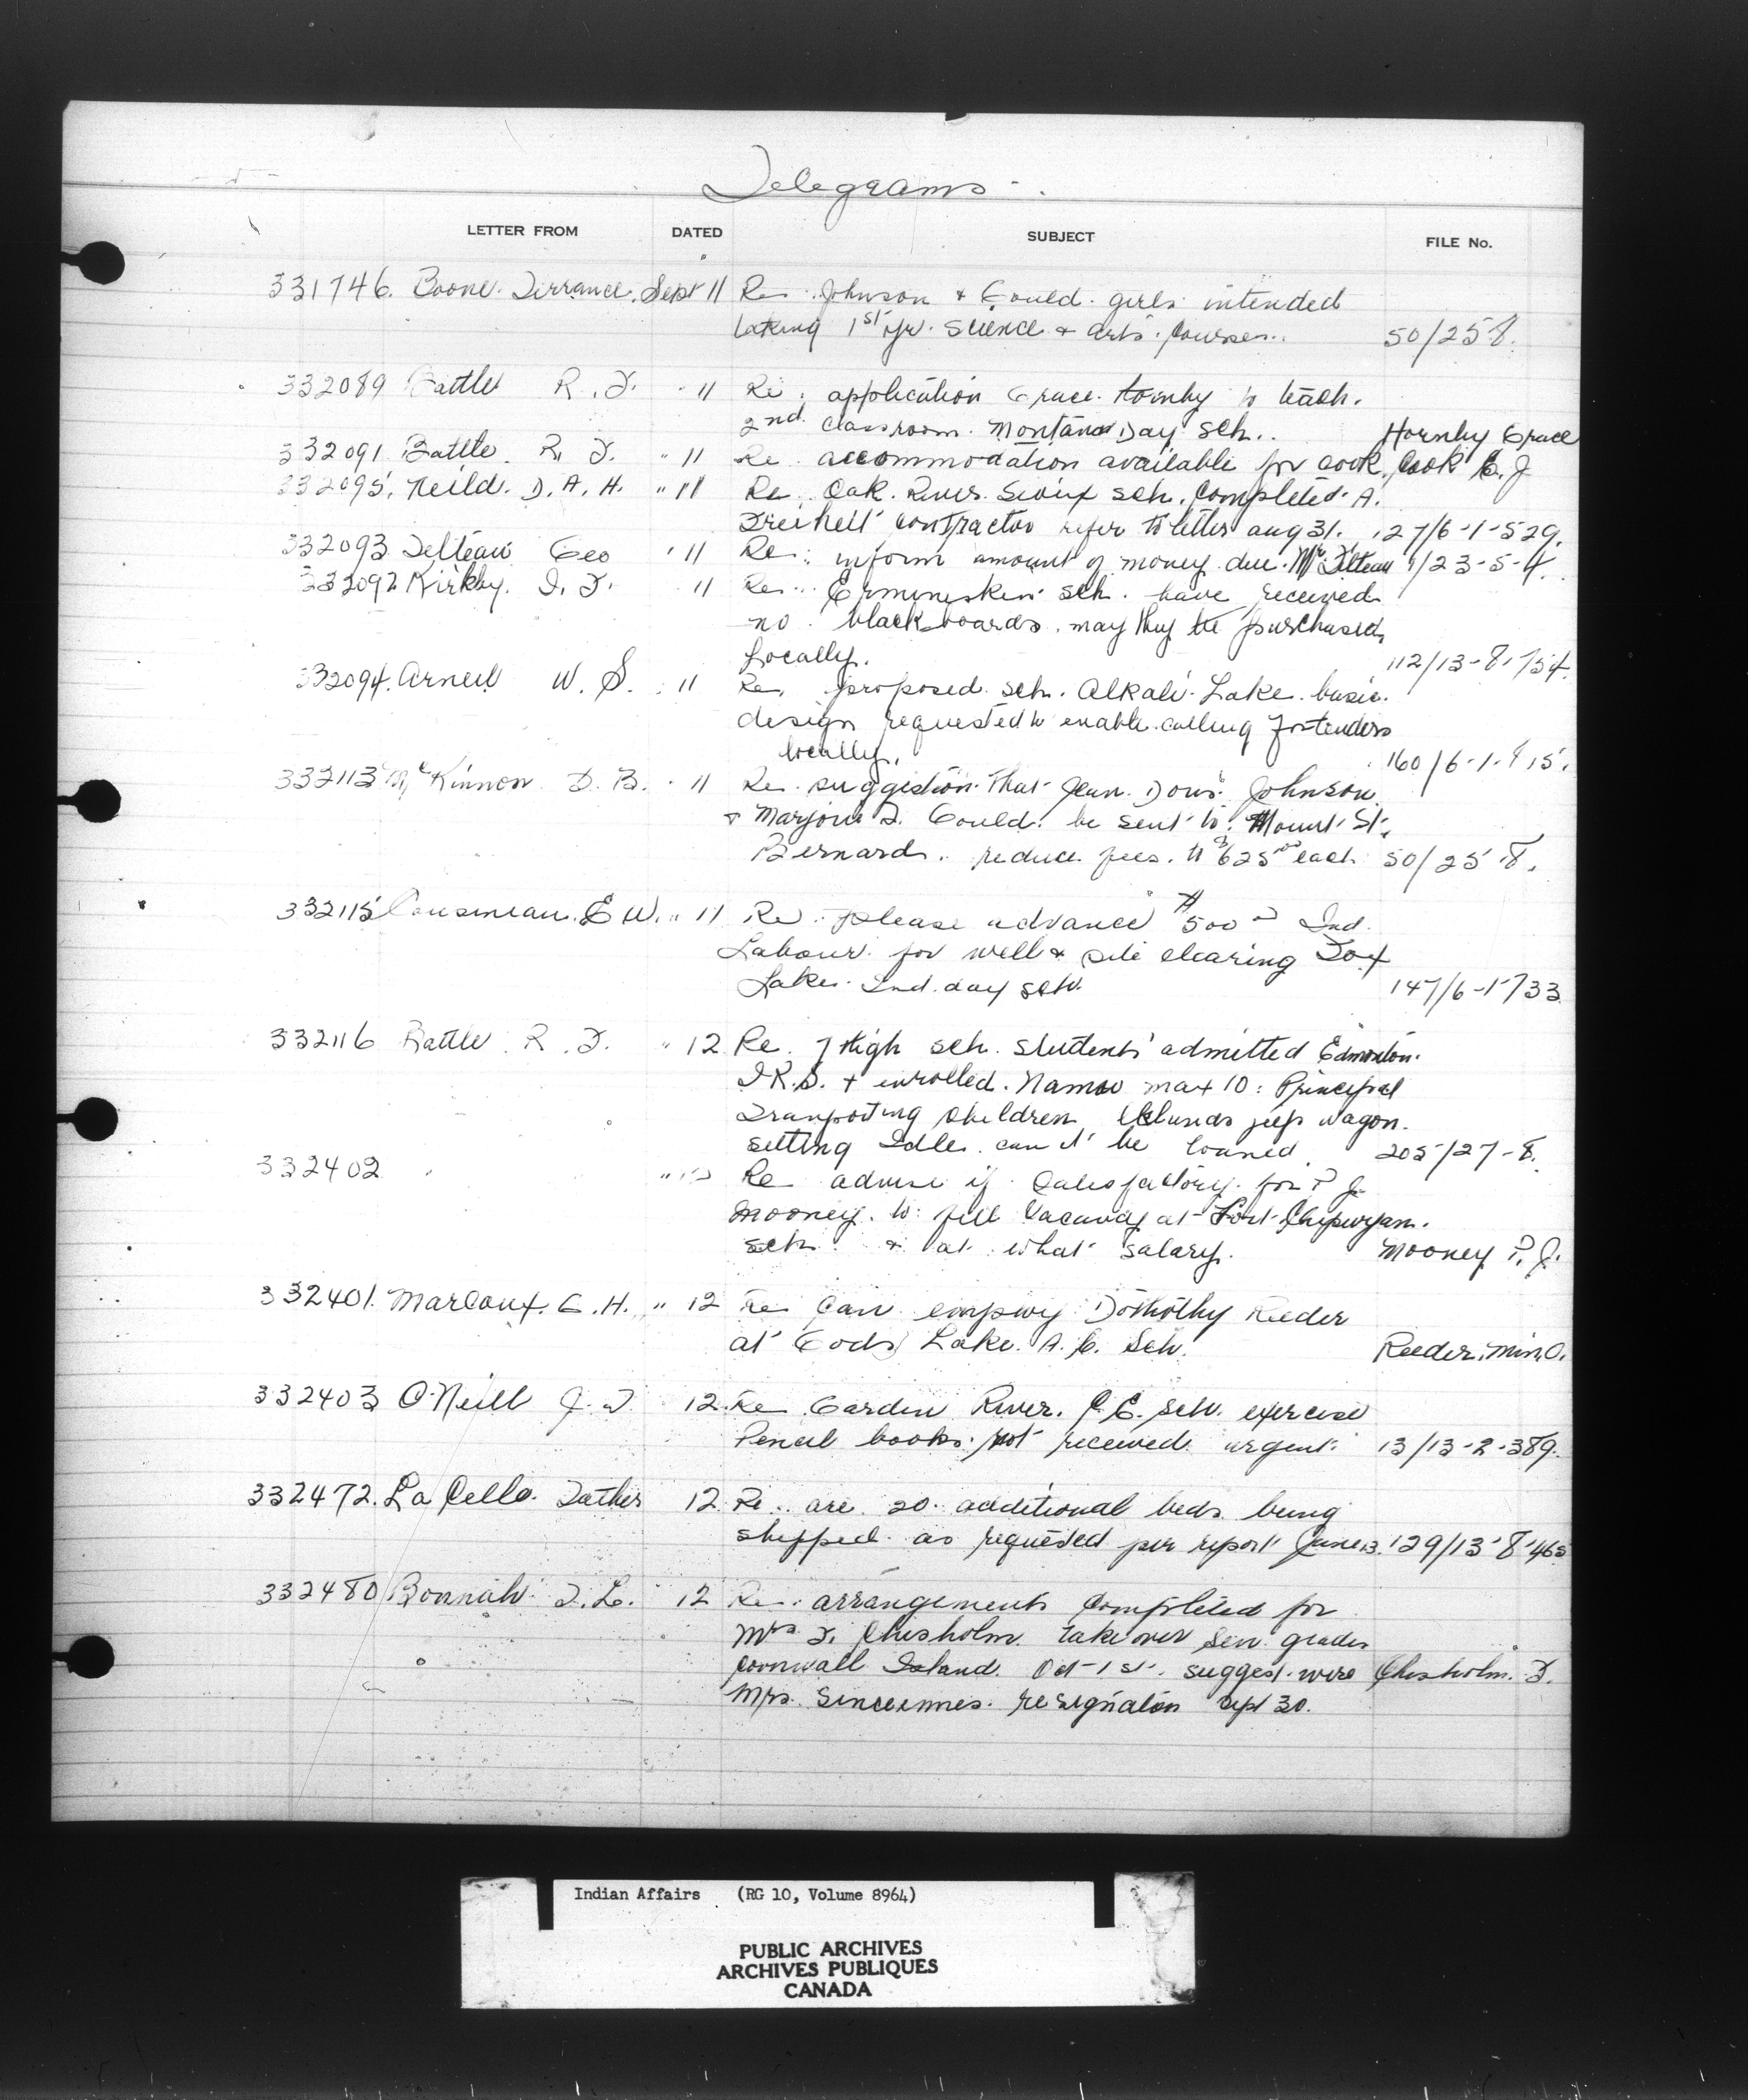 Telegrams
LETTER FROM DATED SUBJECT FILE No.
331746. Boone Terrance. Sept 11 Re Johnson & Gould girls intended
taking 1st yr. Science & arts courses. 50/25-8.
332089 Battle R. F. " 11 Re: application Grace Hornby to teach.
2nd classroom Montana Day Sch. Hornby Grace
332091 Battle R. F. " 11 Re accommodation available for cook, Cook E. J
332095. Neild. D. A. H. " 11 Re Oak River Sioux sch. Completed A.
contractor refer to letter aug 31. 127/6-1-529.
332093 Geo " 11 Re: inform amount of money due Mr 1/23-5-4.
332092 Kirkby. I. F. " 11 Re: Ermineskin sch. have received
no blackboards. may they be purchased
locally. 112/13-8-154.
332094. Arneil W. S. " 11 Re, proposed sch. Alkali Lake basic
design requested to enable calling for tenders
locally. 160/6-1-815.
332113 McKinnon D. B. " 11 Re suggestion that Jean Doris Johnson
& Marjorie F. Gould be sent to Mount St.
Bernard. reduce fees. to $625.00 each 50/25-8.
332115 Cousineau. E W. " 11 Re please advance $500 00 Ind.
Labour for well & site clearing Fox
Lake Ind. day sch. 147/6-1-733
332116 Battle R. F. " 12 Re. 7 High sch. students admitted Edmonton.
I R.S. & enrolled. Namao max 10: Principal
Transporting children jeep wagon.
setting Idle can it be loaned. 205/27-8.
332402 " " Re advise if satisfactory for P J.
Mooney. to fill Vacancy at Fort Chipewyan.
sch. & at what salary. Mooney P. J.
332401. Marcoux. G. H. " 12 Re Can employ Dorothy Reeder
at Gods Lake. A. C. Sch. Reeder.
332403 O'Neill J. T. 12. Re Garden River. C E. sch. exercise
Pencil books not received urgent. 13/13-2-389.
332472. La Celle. Father 12 Re. are 20 additional beds being
shipped as requested per report June 13. 129/13-8-465
332480 Bonnah T. L. 12 Re: arrangements completed for
Mrs F. Chisholm take over sen. grades
Cornwall Island. Oct 1st. suggest wire Chisholm. F.
Mrs. resignation Sept 30.
Indian Affairs (RG 10, Volume 8964)
PUBLIC ARCHIVES
ARCHIVES PUBLIQUES
CANADA